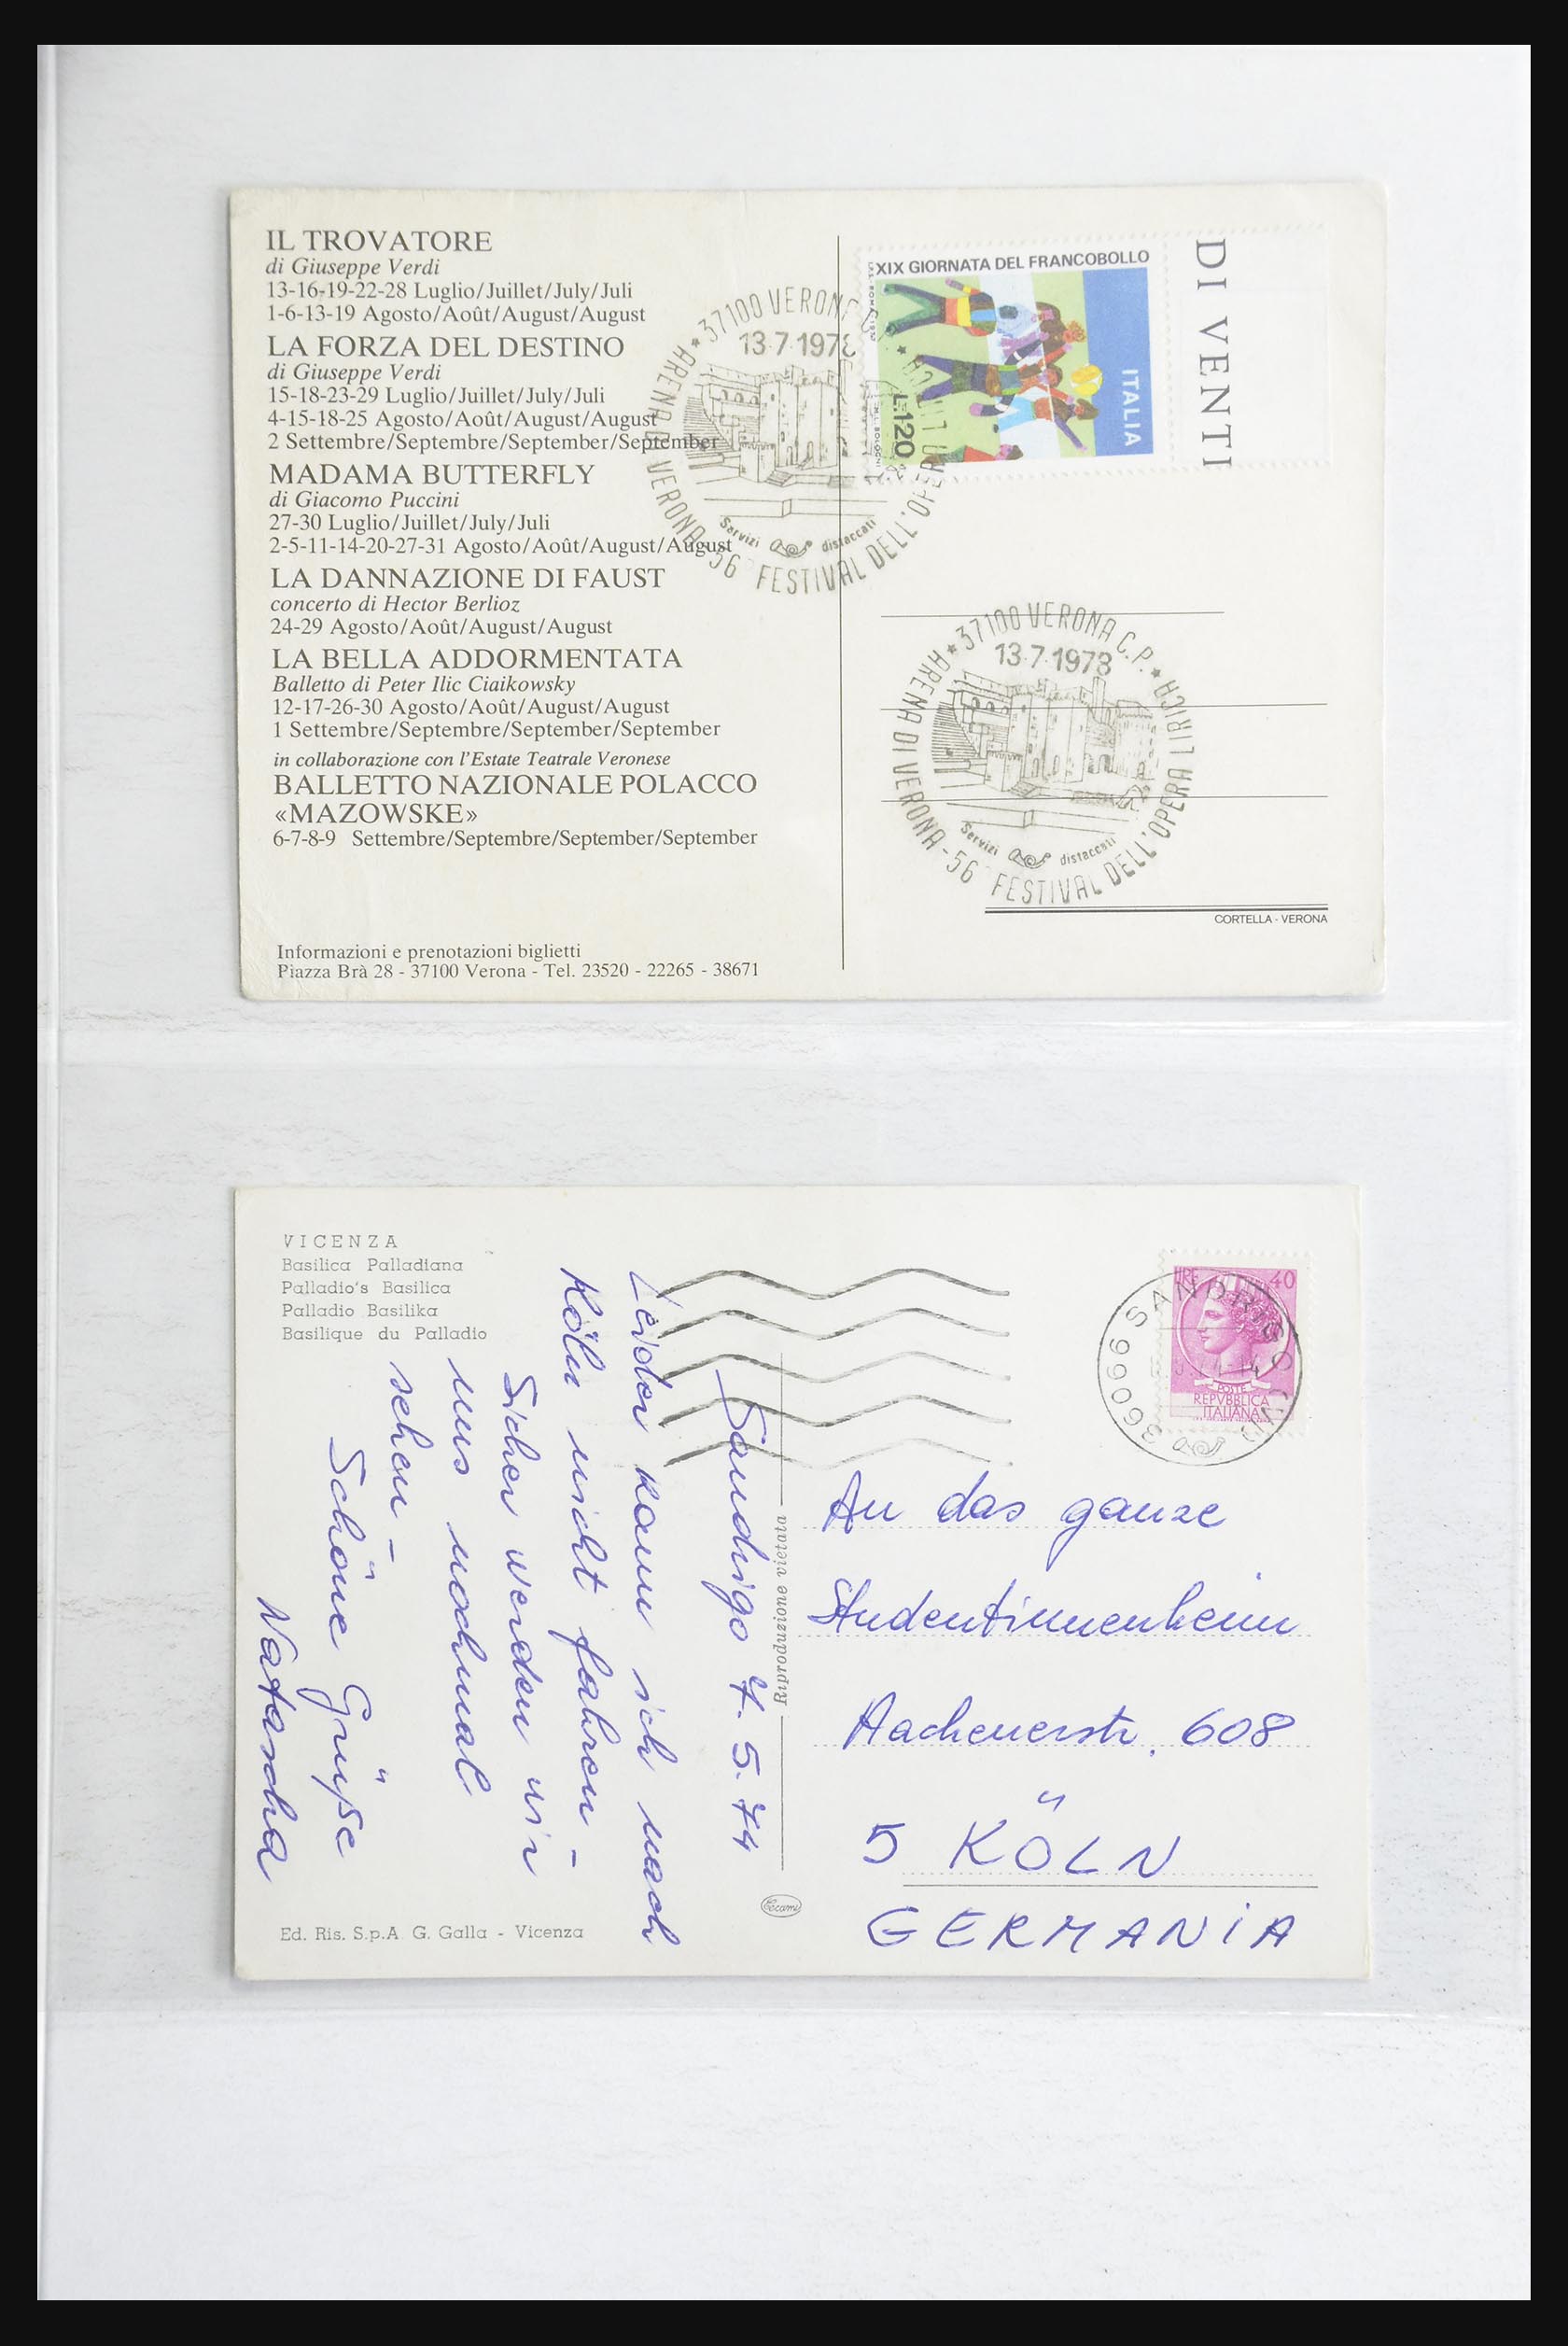 IL TROVATORE
di Giuseppe Verdi
13-16-19-22-28 Luglio/Juillet/July/Juli
1-6-13-19 Agosto/Août/August/August
LA FORZA DEL DESTINO
di Giuseppe Verdi
15-18-23-29 Luglio/Juillet/July/Juli
4-15-18-25 Agosto/Août/August/August
2 Settembre/Septembre/September/September
MADAMA BUTTERFLY
di Giacomo Puccini
27-30 Luglio/Juillet/July/Juli
2-5-11-14-20-27-31 Agosto/Août/August/August
LA DANNAZIONE DI FAUST
concerto di Hector Berlioz
24-29 Agosto/Août/August/August
LA BELLA ADDORMENTATA
Balletto di Peter Ilic Ciaikowsky
12-17-26-30 Agosto/Août/August/August
1 Settembre/Septembre/September/September
in collaborazione con l'Estate Teatrale Veronese
BALLETTO NAZIONALE POLACCO
«MAZOWSKE»
6-7-8-9 Settembre/Septembre/September/September
Informazioni e prenotazioni biglietti
Piazza Brà 28 - 37100 Verona - Tel. 23520 - 22265 - 38671
37100 VERONA C.P.
13·7·1978
ARENA DI VERONA - 56° FESTIVAL DELL'OPERA LIRICA
Servizi distaccati
XIX GIORNATA DEL FRANCOBOLLO
ITALIA
L.120
DI VENTI
37100 VERONA C.P.
13·7·1978
ARENA DI VERONA - 56° FESTIVAL DELL'OPERA LIRICA
Servizi distaccati
CORTELLA - VERONA
VICENZA
Basilica Palladiana
Palladio's Basilica
Palladio Basilika
Basilique du Palladio
Sandrigo 7.5.74
Leider kann ich nach
Köln nicht fahren -
Sicher werden wir
uns nochmal
sehen -
Schöne Grüße
Natascha
Ed. Ris. S.p.A. G. Galla - Vicenza
Riproduzione vietata
LIRE 40
POSTE
REPVBBLICA
ITALIANA
36066 SANDRIGO (VI)
An das ganze
Studentinnenheim
Aachenerstr. 608
5 KÖLN
GERMANIA